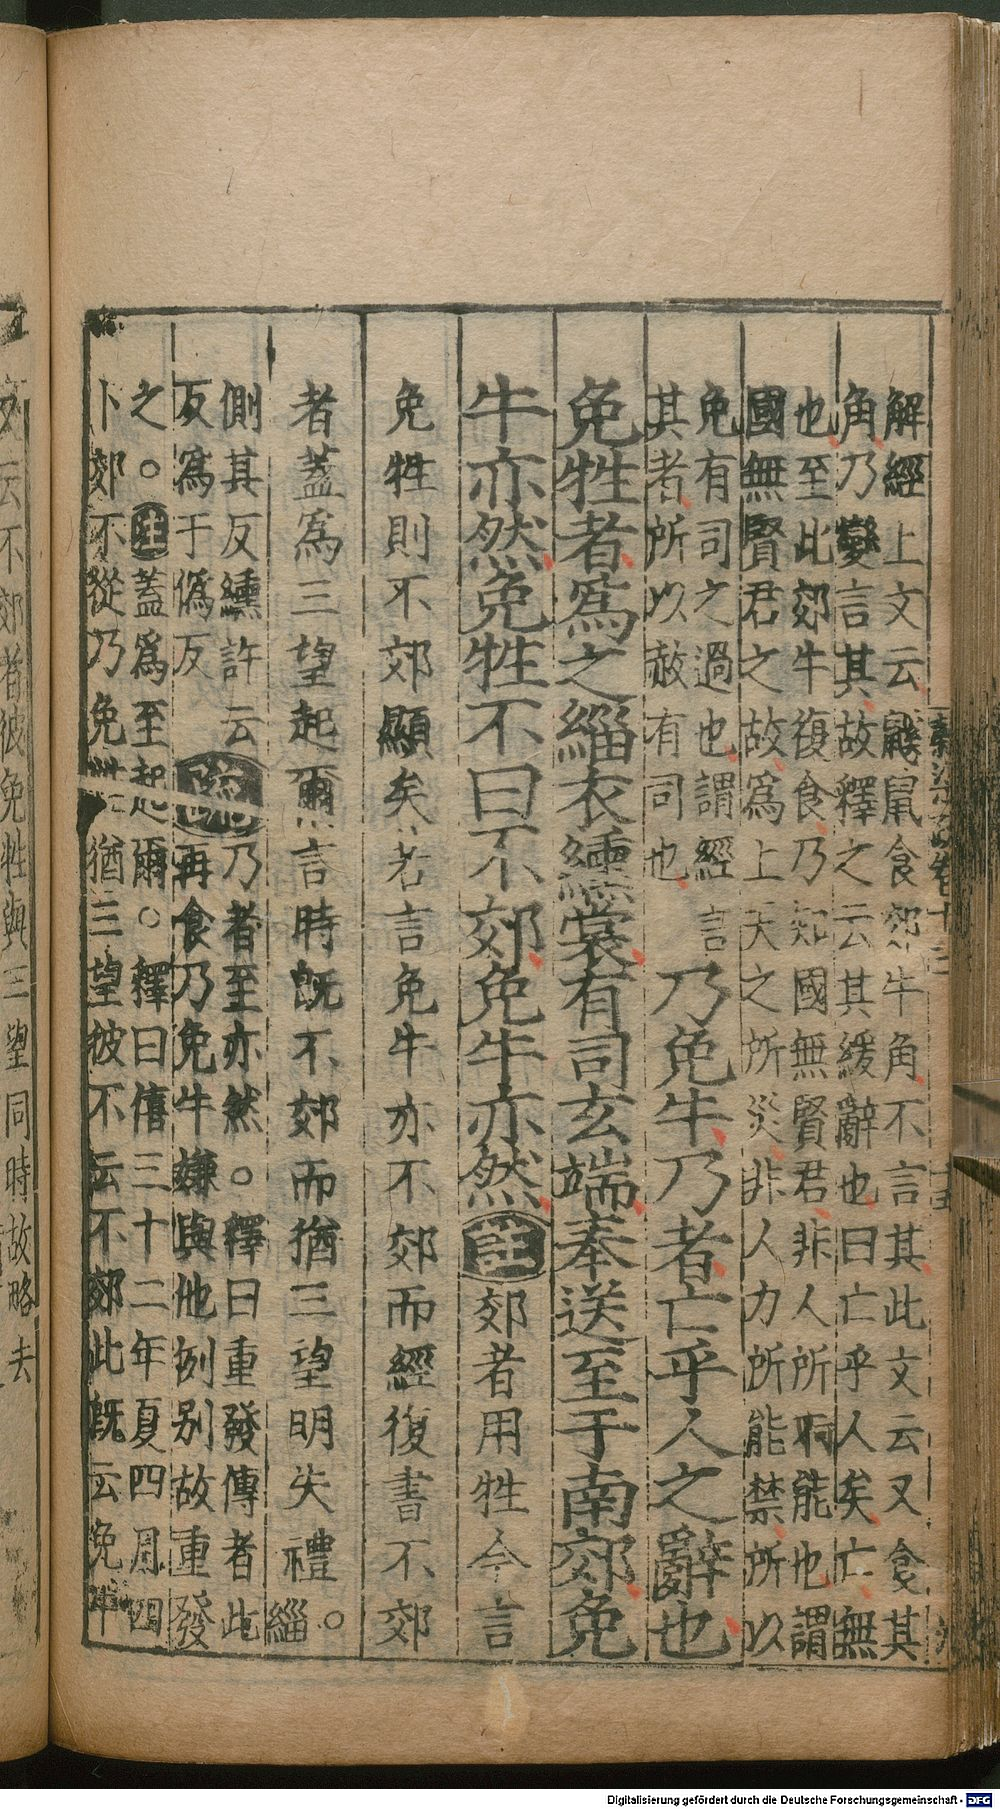 解經上文云鼷鼠食郊牛角不言其此文云又食其
角乃變言其故釋之云其緩辭也曰亡乎人矣亡無
也至此郊牛復食乃知國無賢君非人所能也謂
國無賢君之故爲上天之所災非人力所能禁所以
免有司之過也謂經言
其者所以赦有司也
乃免牛乃者亡乎人之辭也
免牲者爲之緇衣纁裳有司玄端奉送至于南郊免
牛亦然免牲不曰不郊免牛亦然註郊者用牲今言
免牲則不郊顯矣若言免牛亦不郊而經復書不郊
者蓋爲三望起爾言時旣不郊而猶三望明失禮。緇
側其反纁許云
反爲于僞反
疏
乃者至亦然。釋曰重發傳者此
再食乃免牛嫌與他例别故重發
之。註蓋爲至起爾。釋曰僖三十二年夏四月四
卜郊不從乃免牲猶三望彼不云不郊此旣云免牛
文云不郊者彼免牲與三望同時故略去
Digitalisierung gefördert durch die Deutsche Forschungsgemeinschaft - DFG